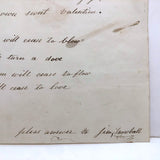 own sweet Valentine.
will cease to blow
turn a dove
will cease to flow
will cease to love
please answer to